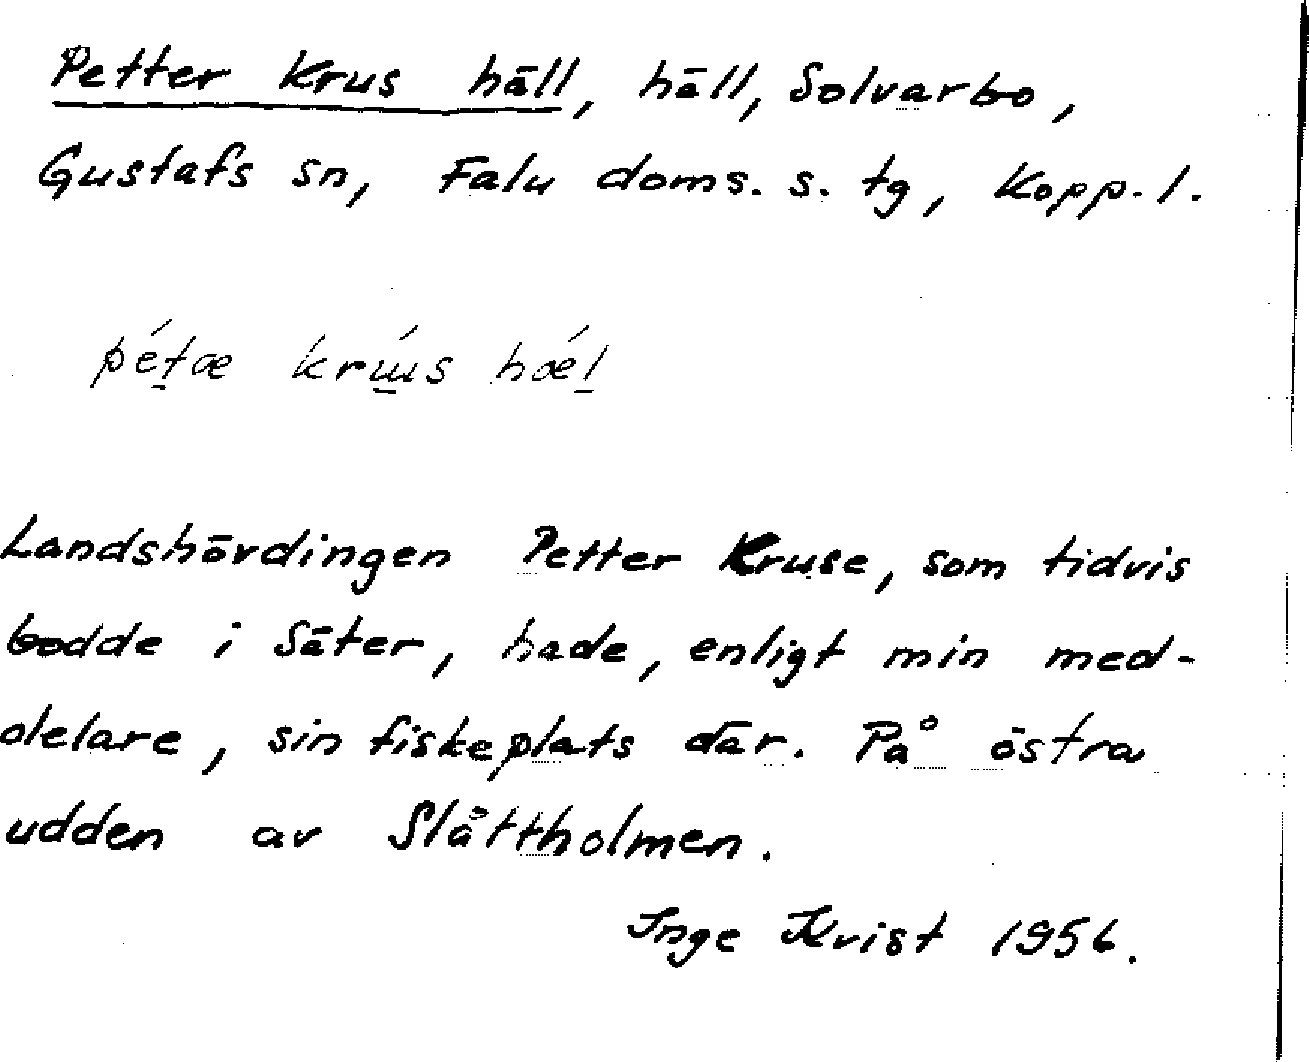 Petter Krus häll, häll, Solvarbo,
Gustafs sn, Falu doms. s. tg, Kopp. l.
pétæ krɯ́s hǽl
Landshövdingen Petter Kruse, som tidvis
bodde i Säter, hade, enligt min med-
delare, sin fiskeplats där. På östra
udden av Slåttholmen.
Inge Kvist 1956.